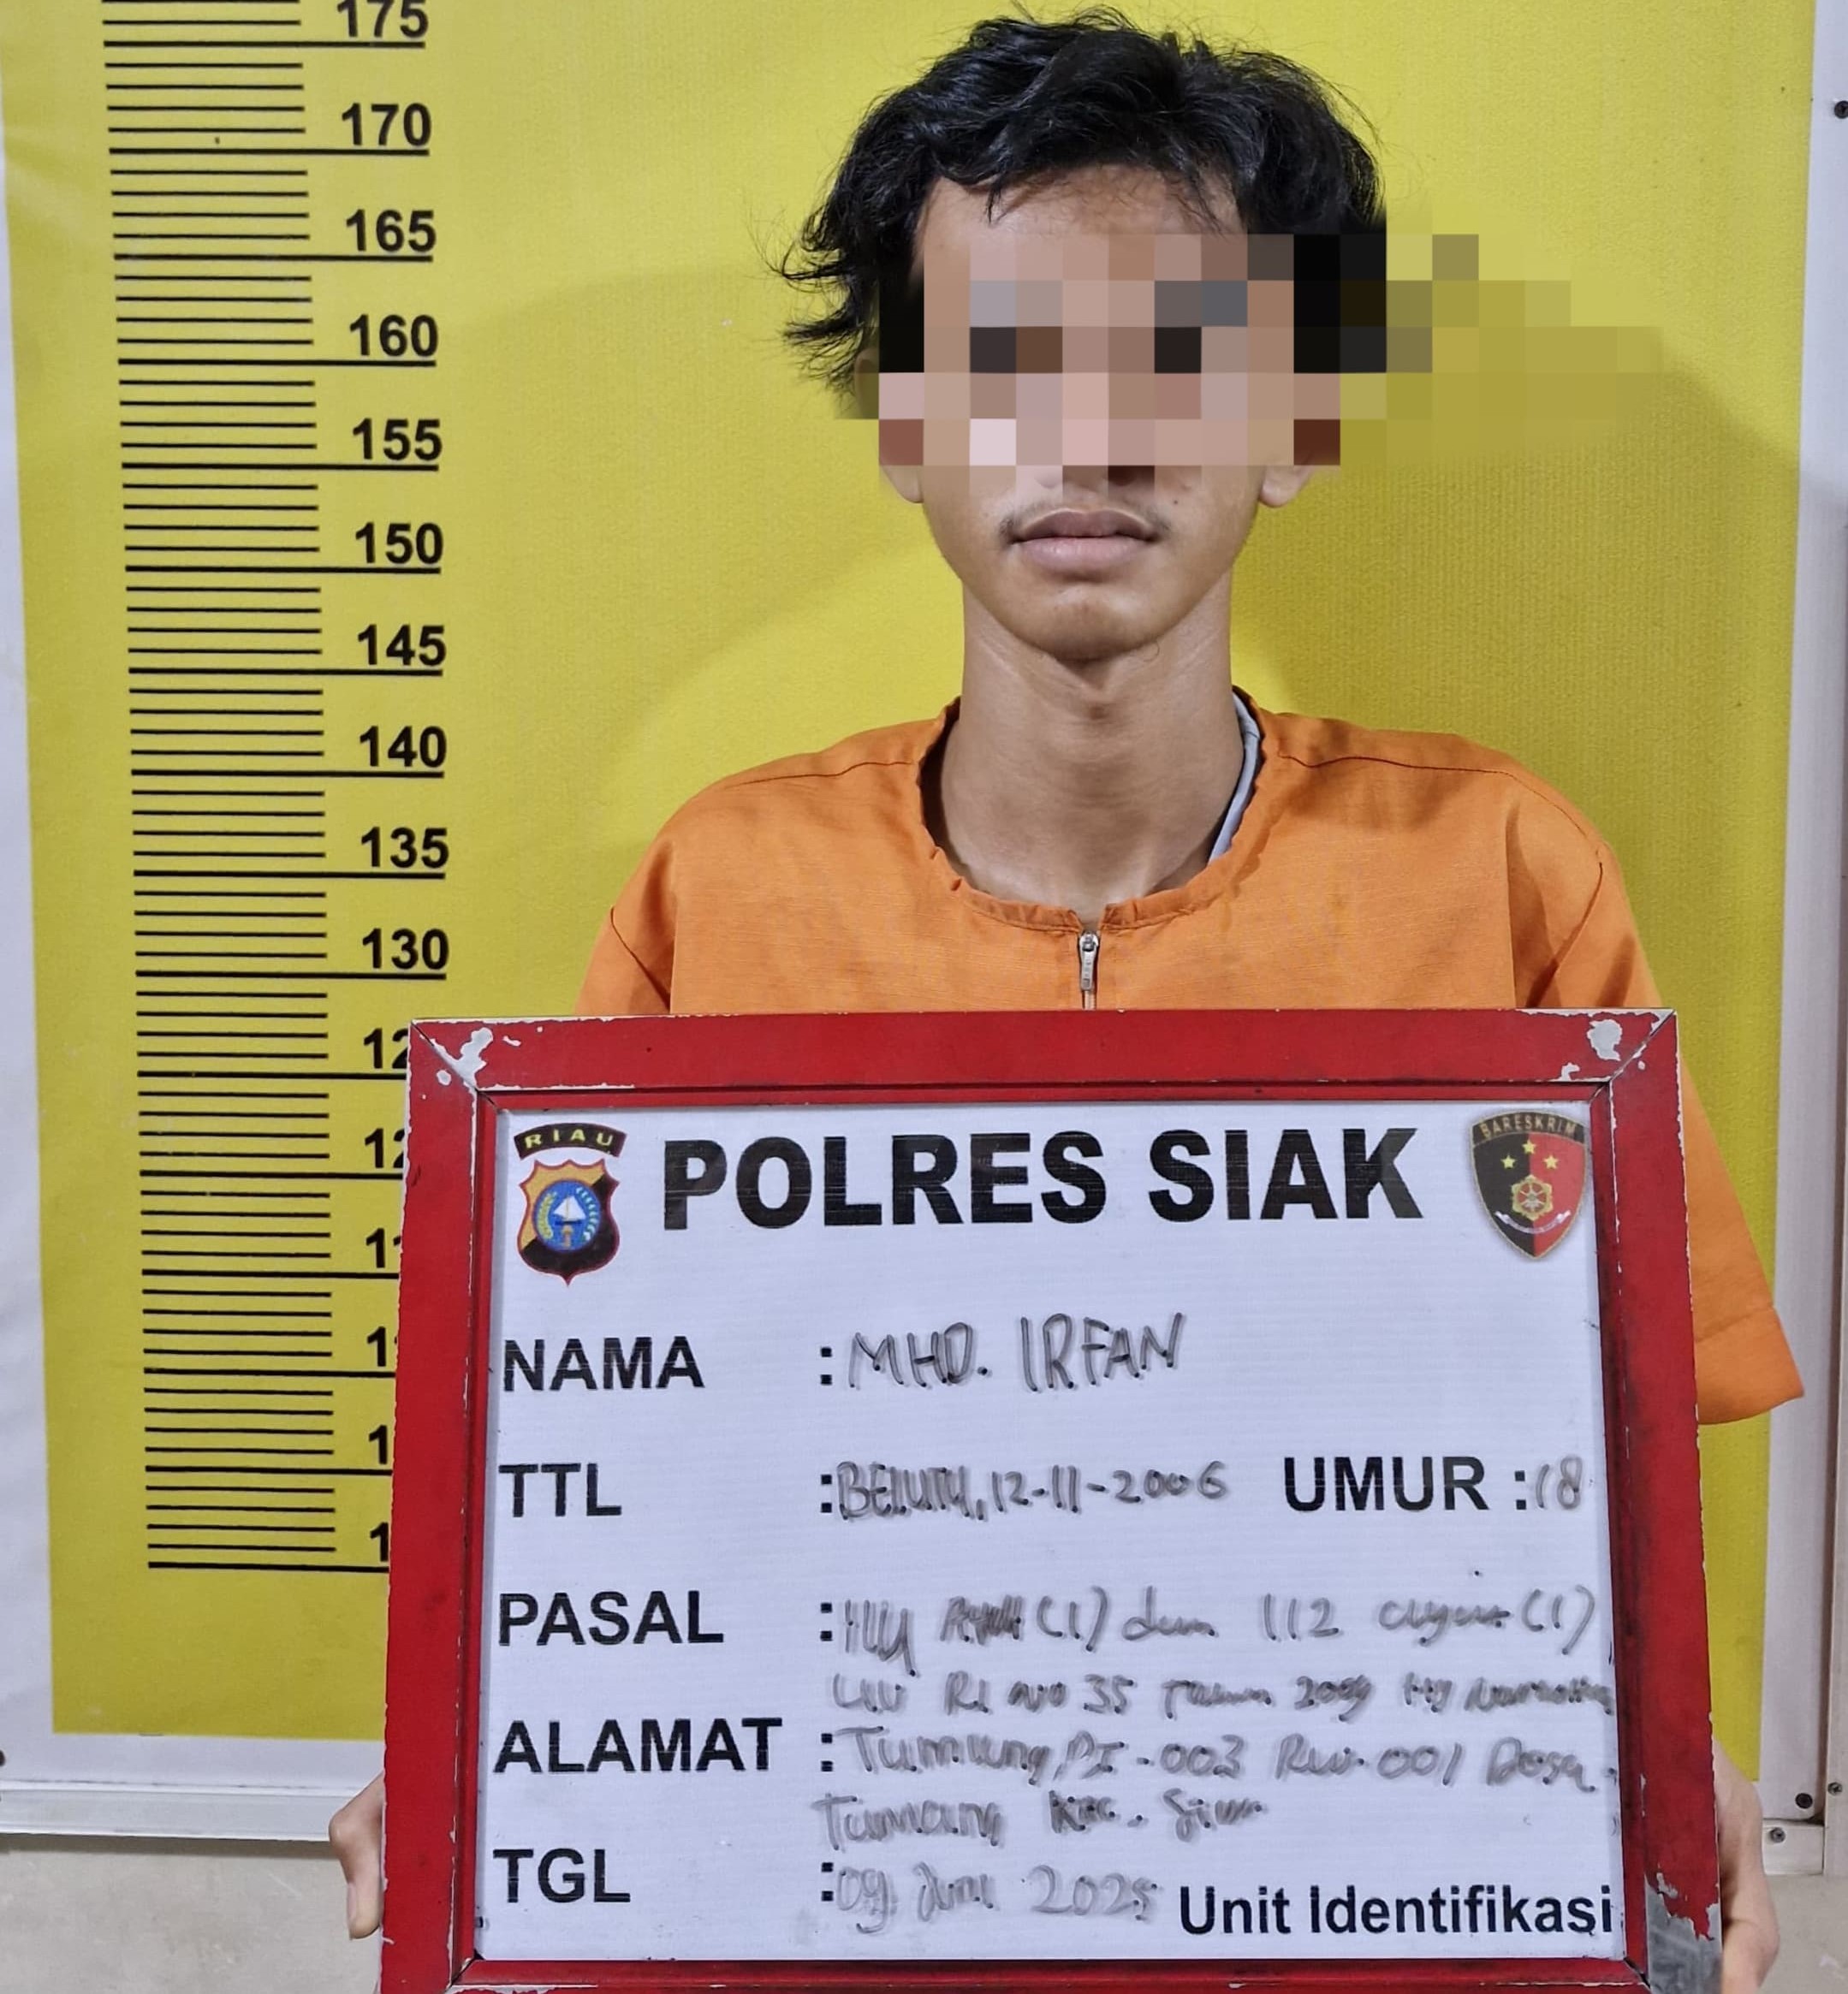 175
170
165
160
155
150
145
140
135
130
RIAU
POLRES SIAK
BARESKRIM
NAMA : MHD. IRFAN
TTL : 12-11-2006 UMUR : 18
PASAL : (1) dan 112 ayat (1)
UU RI No 35 Tahun 2009 ttg Narkotika
ALAMAT : Tumang, RT-003 Rw.001 Desa
Tumang Kec. Siak
TGL : 09 Juni 2025 Unit Identifikasi